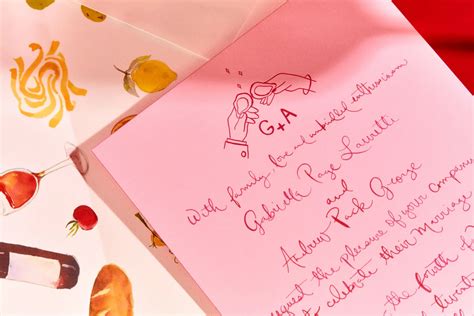 G+A
With family, love and unbridled enthusiasm
Gabrielle Paige Lavrette
and
Andrew Pack George
request the pleasure of your company
to celebrate their Marriage
the fourth of